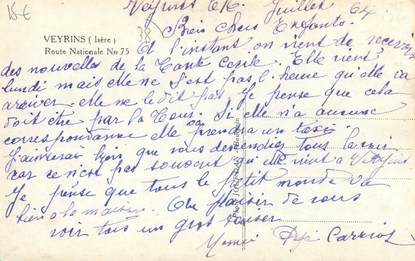 15 €
Veyrins le Juillet 64
VEYRINS ( Isère )
Route Nationale No 75
38
Bien chers Enfants.
A l'instant on vient de recevoir
des nouvelles de la Tante Elle vient
lundi mais elle ne s'est pas l'heure qu'elle va
arriver elle ne le dit pas. Je pense que cela
doit être par la Tour. Si elle n'a aucune
correspondance elle prendra un taxi
J'aimerai bien que vous descendiez tous la voir
car se n'est pas souvent qu'elle vient à Veyrins
Je pense que tous le petit monde va
bien a la maison. Au plaisir de vous
voir tous un gros baiser
Mimi Pépé